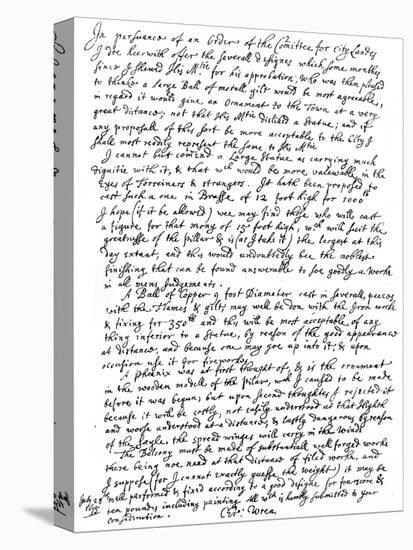 In pursuance of an Order of the Comittee for City Landes
I doe heerwith offer the severall designes which some monthes
since I shewed His Mtie for his approbation, who was then pleased
to thinke a large Ball of metall gilt would be most agreeable,
in regard it would give an Ornament to the Town at a very
great distance; not that His Mtie disliked a Statue; and if
any proposall of this sort be more acceptable to the City I
shall most readily represent the same to His Mtie
I cannot but comend a Large Statue as carrying much
dignitie with it, & that wch would be more valewable in the
Eyes of Forreiners & strangers. It hath been proposed to
cast such a one in Brasse of 12 foot high for 1000lb
I hope (if it be allowed) wee may find those who will cast
a figure for that mony of 15 foot high, wch will suit the
greatnesse of the pillar & is (as I take it) the largest at this
day extant, and this would undoubtedly bee the noblest
finishing that can be found answerable to soe goodly a worke
in all mens Judgements.
A Ball of Copper 9 foot Diameter cast in severall peeces
with the Flames & gilt, may well be don with the Iron worke
& fixing for 350lb and this will be most acceptable of any
thing inferior to a Statue, by reason of the good appearance
at distance, and because one may goe up into it, & upon
occasion use it for fireworkes.
A phoenix was at first thought of, & is the ornament
in the wooden modell of the pillar, wch I caused to be made
before it was begun; but upon second thoughtes I rejected it
because it will be costly, not easily understood at that Highth
and worse understood at a distance & lastly dangerous by reason
of the sayle the spread winges will carry in the winde
The Balcony must be made of substantiall well forged worke
there being noe need at that distance of filed worke, and
I suppose (for I cannot exactly guesse the weight) it may be
well performed & fixed according to a good designe for fourscore &
ten poundes including painting. All wch is humbly submitted to your
consideration.
July 28th
Chr: Wren.